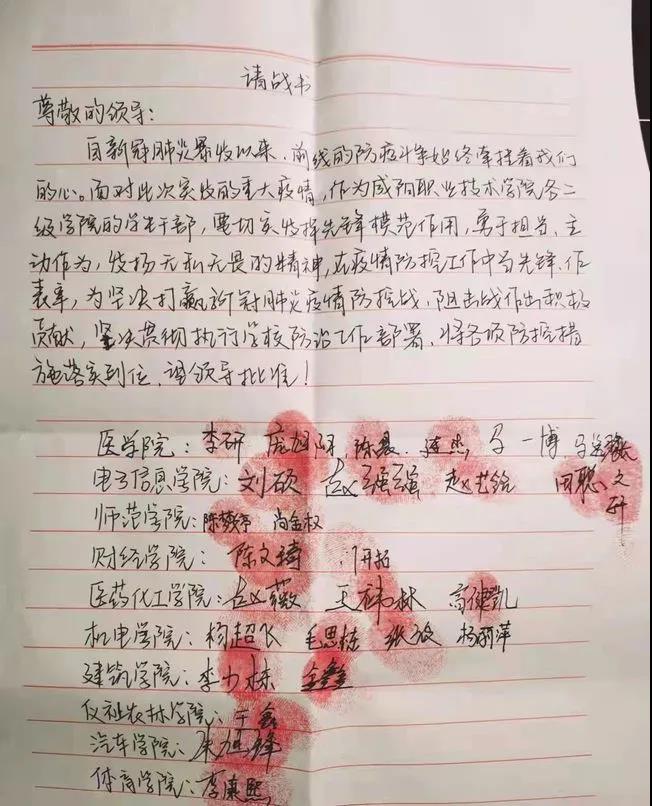 请战书
尊敬的领导：
自新冠肺炎暴发以来，前线的防疫斗争始终牵挂着我们
的心。面对此次突发的重大疫情，作为咸阳职业技术学院各二
级学院的学生干部，要切实发挥先锋模范作用，勇于担当、主
动作为，发扬无私无畏的精神，在疫情防控工作中当先锋、作
表率，为坚决打赢新冠肺炎疫情防控战、阻击战作出积极
贡献，坚决贯彻执行学校防治工作部署，将各项防控措
施落实到位，请领导批准！
医学院：李研 庞旭阳 一博
电子信息学院：刘硕 赵强强 赵艺绘 田聪文
师范学院：陈梦婷 尚金权
财经学院：陈文琦 闫开拓
医药化工学院：赵薇 王祎林 高健凯
机电学院：杨超飞 毛思栋 张放 杨丽萍
建筑学院：李力栋 金鑫
仪祉农林学院：于鑫
汽车学院：朱旭锋
体育学院：李康熙